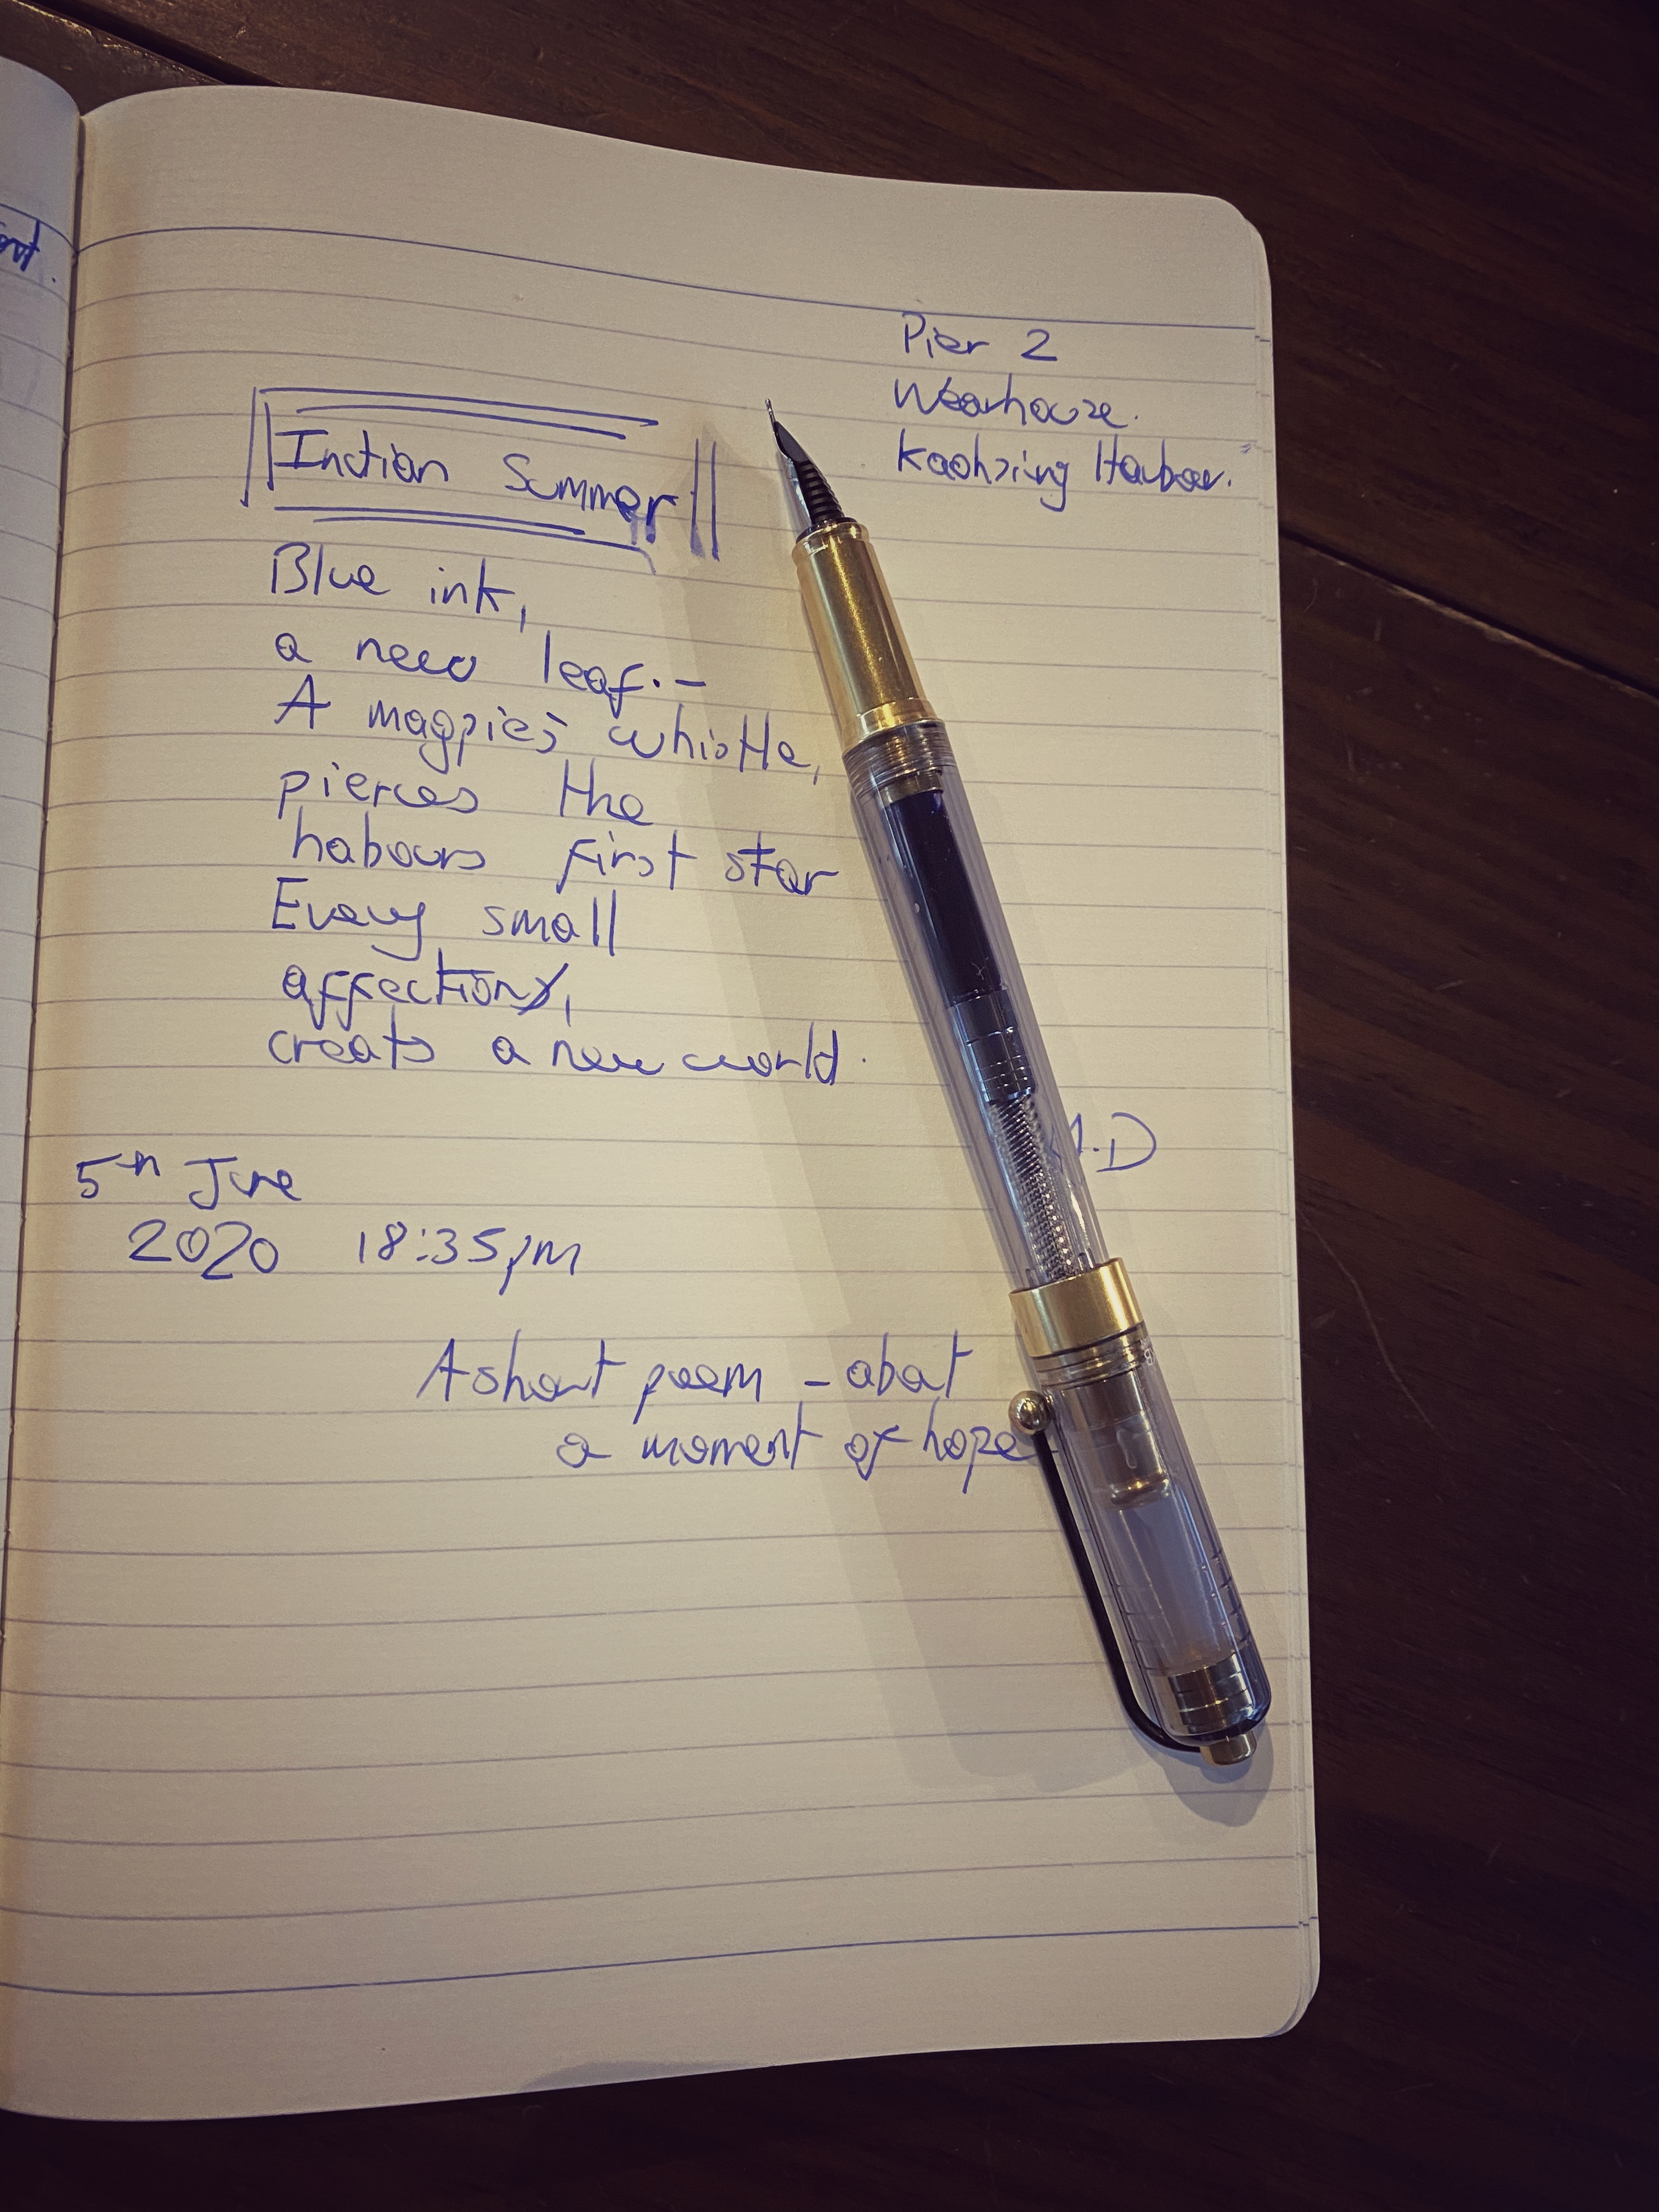 Pier 2
Wearhouse.
Kaohsiung Harbour.
Indian Summer
Blue ink,
a new leaf.-
A magpie's whistle,
pierces the
habours first star
Every small
affection,
creats a new world.
.D
5th June
2020 18:35pm
A short poem - about
a moment of hope